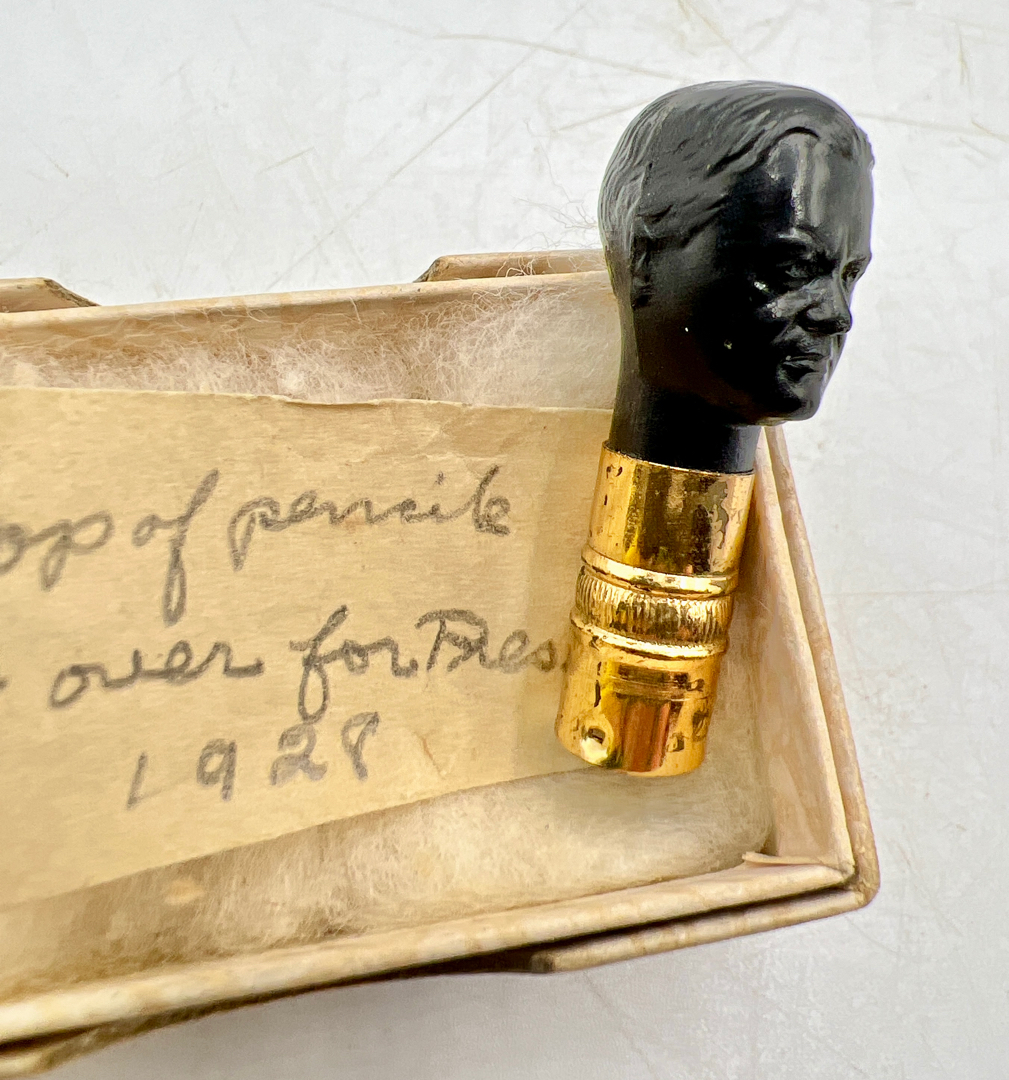 op of pencil
over for Pres
1928